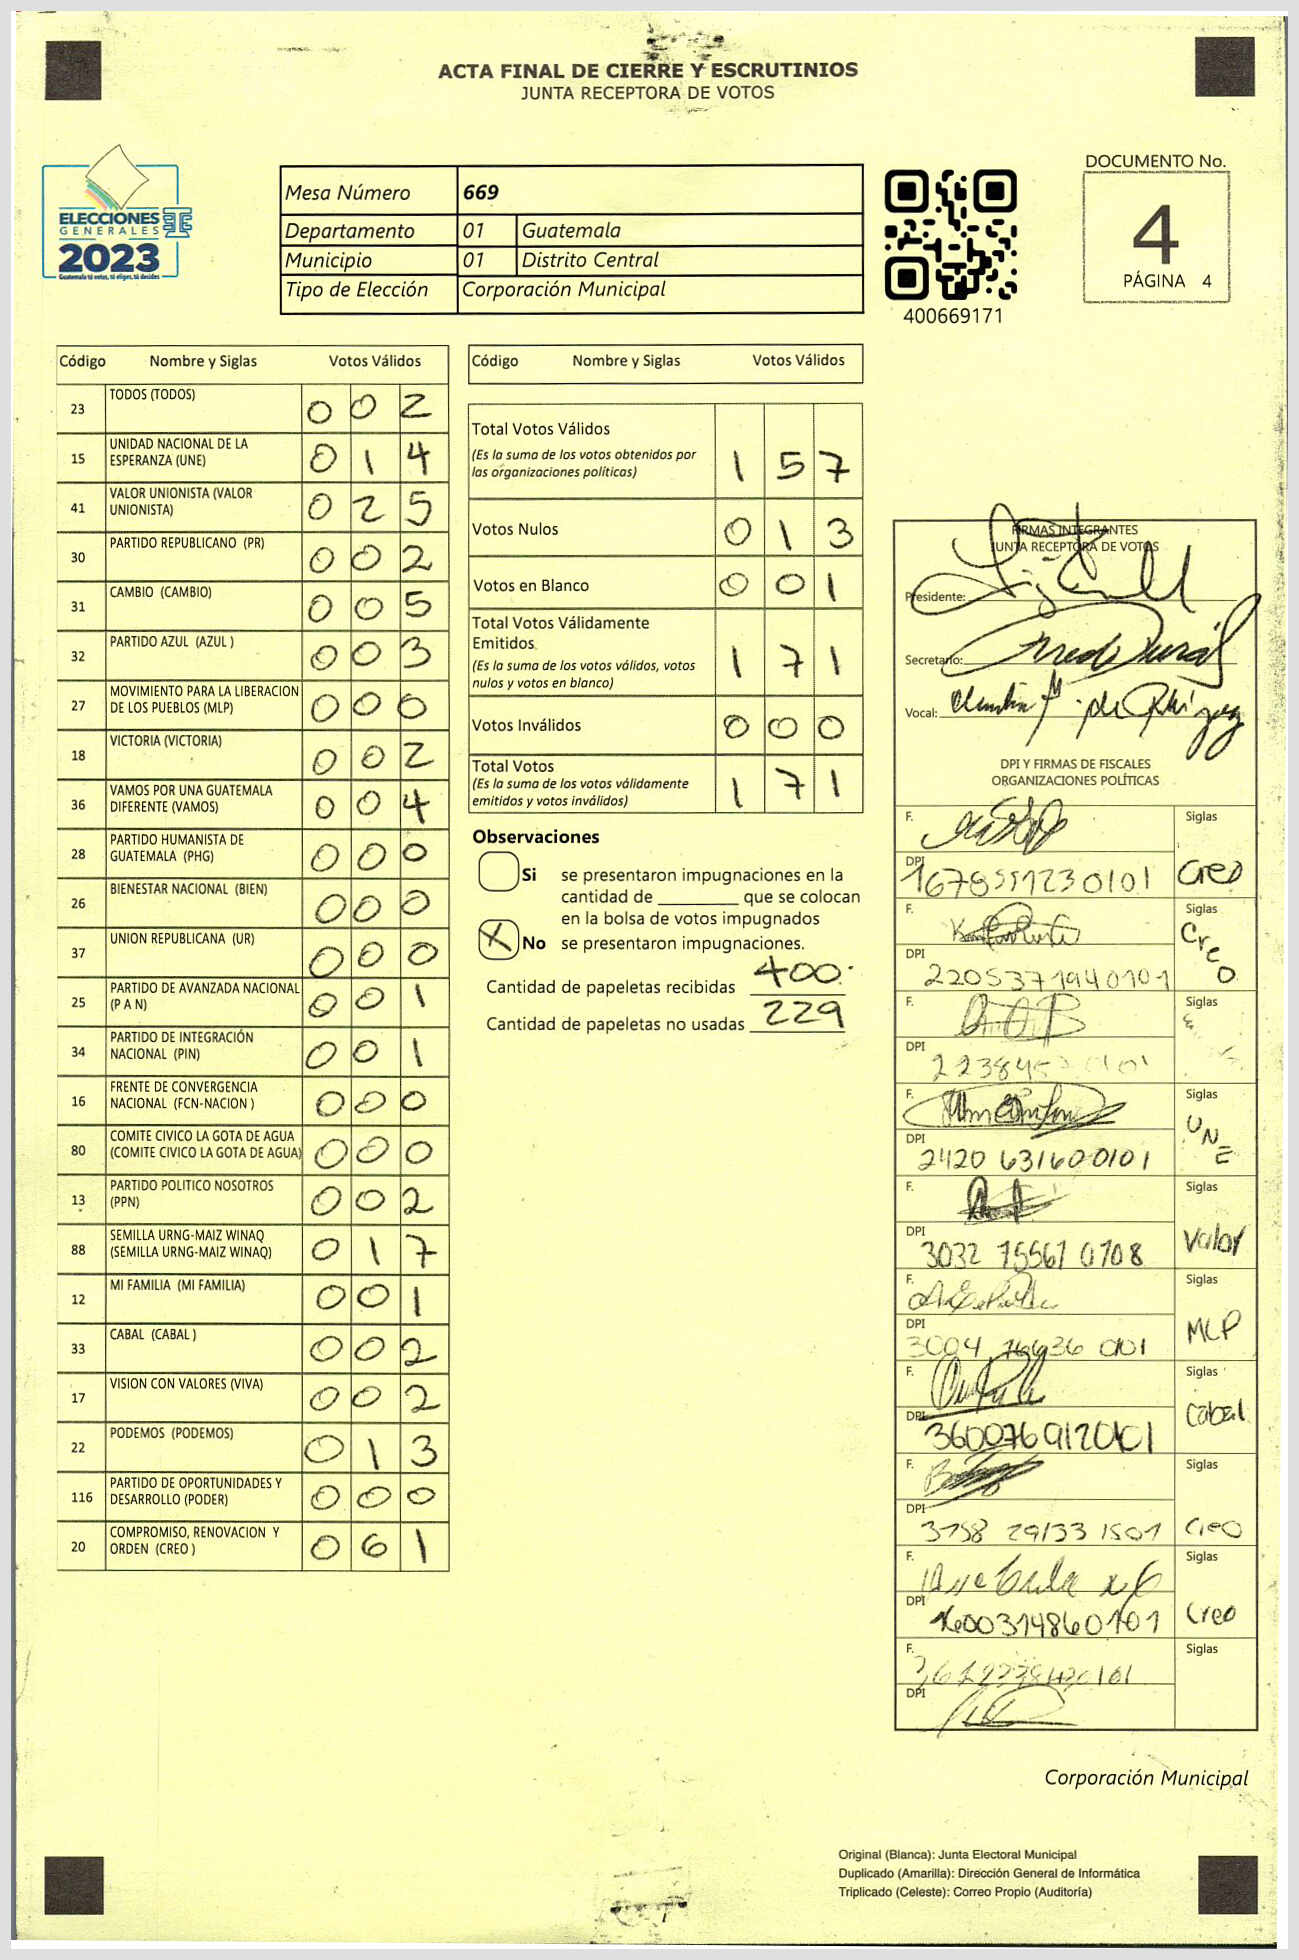 ACTA FINAL DE CIERRE Y ESCRUTINIOS
JUNTA RECEPTORA DE VOTOS
ELECCIONES
GENERALES
2023
Guatemala tú votas, tú eliges, tú decides
Mesa Número 669
Departamento 01 Guatemala
Municipio 01 Distrito Central
Tipo de Elección Corporación Municipal
400669171
DOCUMENTO No.
4
PÁGINA 4
Código Nombre y Siglas Votos Válidos
23 TODOS (TODOS) 0 0 2
15 UNIDAD NACIONAL DE LA ESPERANZA (UNE) 0 1 4
41 VALOR UNIONISTA (VALOR UNIONISTA) 0 2 5
30 PARTIDO REPUBLICANO (PR) 0 0 2
31 CAMBIO (CAMBIO) 0 0 5
32 PARTIDO AZUL (AZUL ) 0 0 3
27 MOVIMIENTO PARA LA LIBERACION DE LOS PUEBLOS (MLP) 0 0 0
18 VICTORIA (VICTORIA) 0 0 2
36 VAMOS POR UNA GUATEMALA DIFERENTE (VAMOS) 0 0 4
28 PARTIDO HUMANISTA DE GUATEMALA (PHG) 0 0 0
26 BIENESTAR NACIONAL (BIEN) 0 0 0
37 UNION REPUBLICANA (UR) 0 0 0
25 PARTIDO DE AVANZADA NACIONAL (P A N) 0 0 1
34 PARTIDO DE INTEGRACIÓN NACIONAL (PIN) 0 0 1
16 FRENTE DE CONVERGENCIA NACIONAL (FCN-NACION ) 0 0 0
80 COMITE CIVICO LA GOTA DE AGUA (COMITE CIVICO LA GOTA DE AGUA) 0 0 0
13 PARTIDO POLITICO NOSOTROS (PPN) 0 0 2
88 SEMILLA URNG-MAIZ WINAQ (SEMILLA URNG-MAIZ WINAQ) 0 1 7
12 MI FAMILIA (MI FAMILIA) 0 0 1
33 CABAL (CABAL ) 0 0 2
17 VISION CON VALORES (VIVA) 0 0 2
22 PODEMOS (PODEMOS) 0 1 3
116 PARTIDO DE OPORTUNIDADES Y DESARROLLO (PODER) 0 0 0
20 COMPROMISO, RENOVACION Y ORDEN (CREO ) 0 6 1
Código Nombre y Siglas Votos Válidos
Total Votos Válidos
(Es la suma de los votos obtenidos por
las organizaciones políticas) 1 5 7
Votos Nulos 0 1 3
Votos en Blanco 0 0 1
Total Votos Válidamente
Emitidos
(Es la suma de los votos válidos, votos
nulos y votos en blanco) 1 7 1
Votos Inválidos 0 0 0
Total Votos
(Es la suma de los votos válidamente
emitidos y votos inválidos) 1 7 1
Observaciones
Si se presentaron impugnaciones en la
cantidad de ________ que se colocan
en la bolsa de votos impugnados
X No se presentaron impugnaciones.
Cantidad de papeletas recibidas 400
Cantidad de papeletas no usadas 229
FIRMAS INTEGRANTES
JUNTA RECEPTORA DE VOTOS
Presidente:
Secretario:
Vocal:
DPI Y FIRMAS DE FISCALES
ORGANIZACIONES POLÍTICAS
F. Siglas
DPI Creo
F. Siglas
DPI 2205371940101 Creo
F. Siglas
DPI
F. Siglas
DPI 2420 63160 0101 UNE
F. Siglas
DPI 3032 75567 0708 Valor
F. Siglas
DPI MLP
F. Siglas
DPI Cabal
F. Siglas
DPI 3758 29133 1501 Creo
F. Siglas
DPI Creo
F. Siglas
DPI
Corporación Municipal
Original (Blanca): Junta Electoral Municipal
Duplicado (Amarilla): Dirección General de Informática
Triplicado (Celeste): Correo Propio (Auditoría)